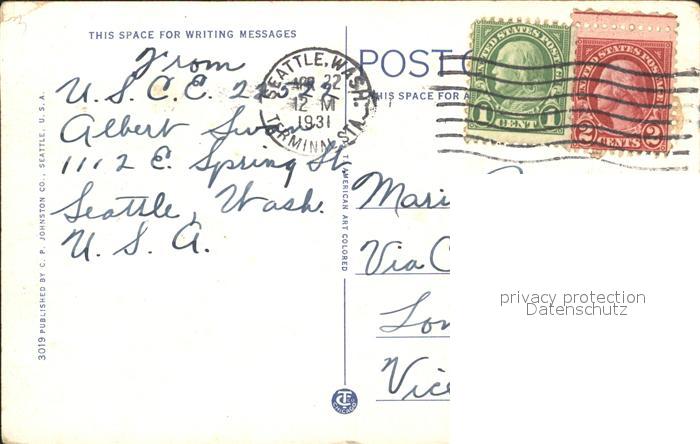 THIS SPACE FOR WRITING MESSAGES
From
U. S. C. E.
Albert
1112 E. Spring St
Seattle, Wash.
U. S. A.
SEATTLE, WASH.
APR 22
12 M
1931
TERMINAL STA.
3019 PUBLISHED BY C. P. JOHNSTON CO., SEATTLE, U.S.A.
AMERICAN ART COLORED
POST
THIS SPACE FOR A
UNITED STATES POSTAGE
1 CENT 1
UNITED STATES POSTAGE
2 CENTS 2
Mari
Via C
Lon
Vice
CT
CHICAGO
privacy protection
Datenschutz